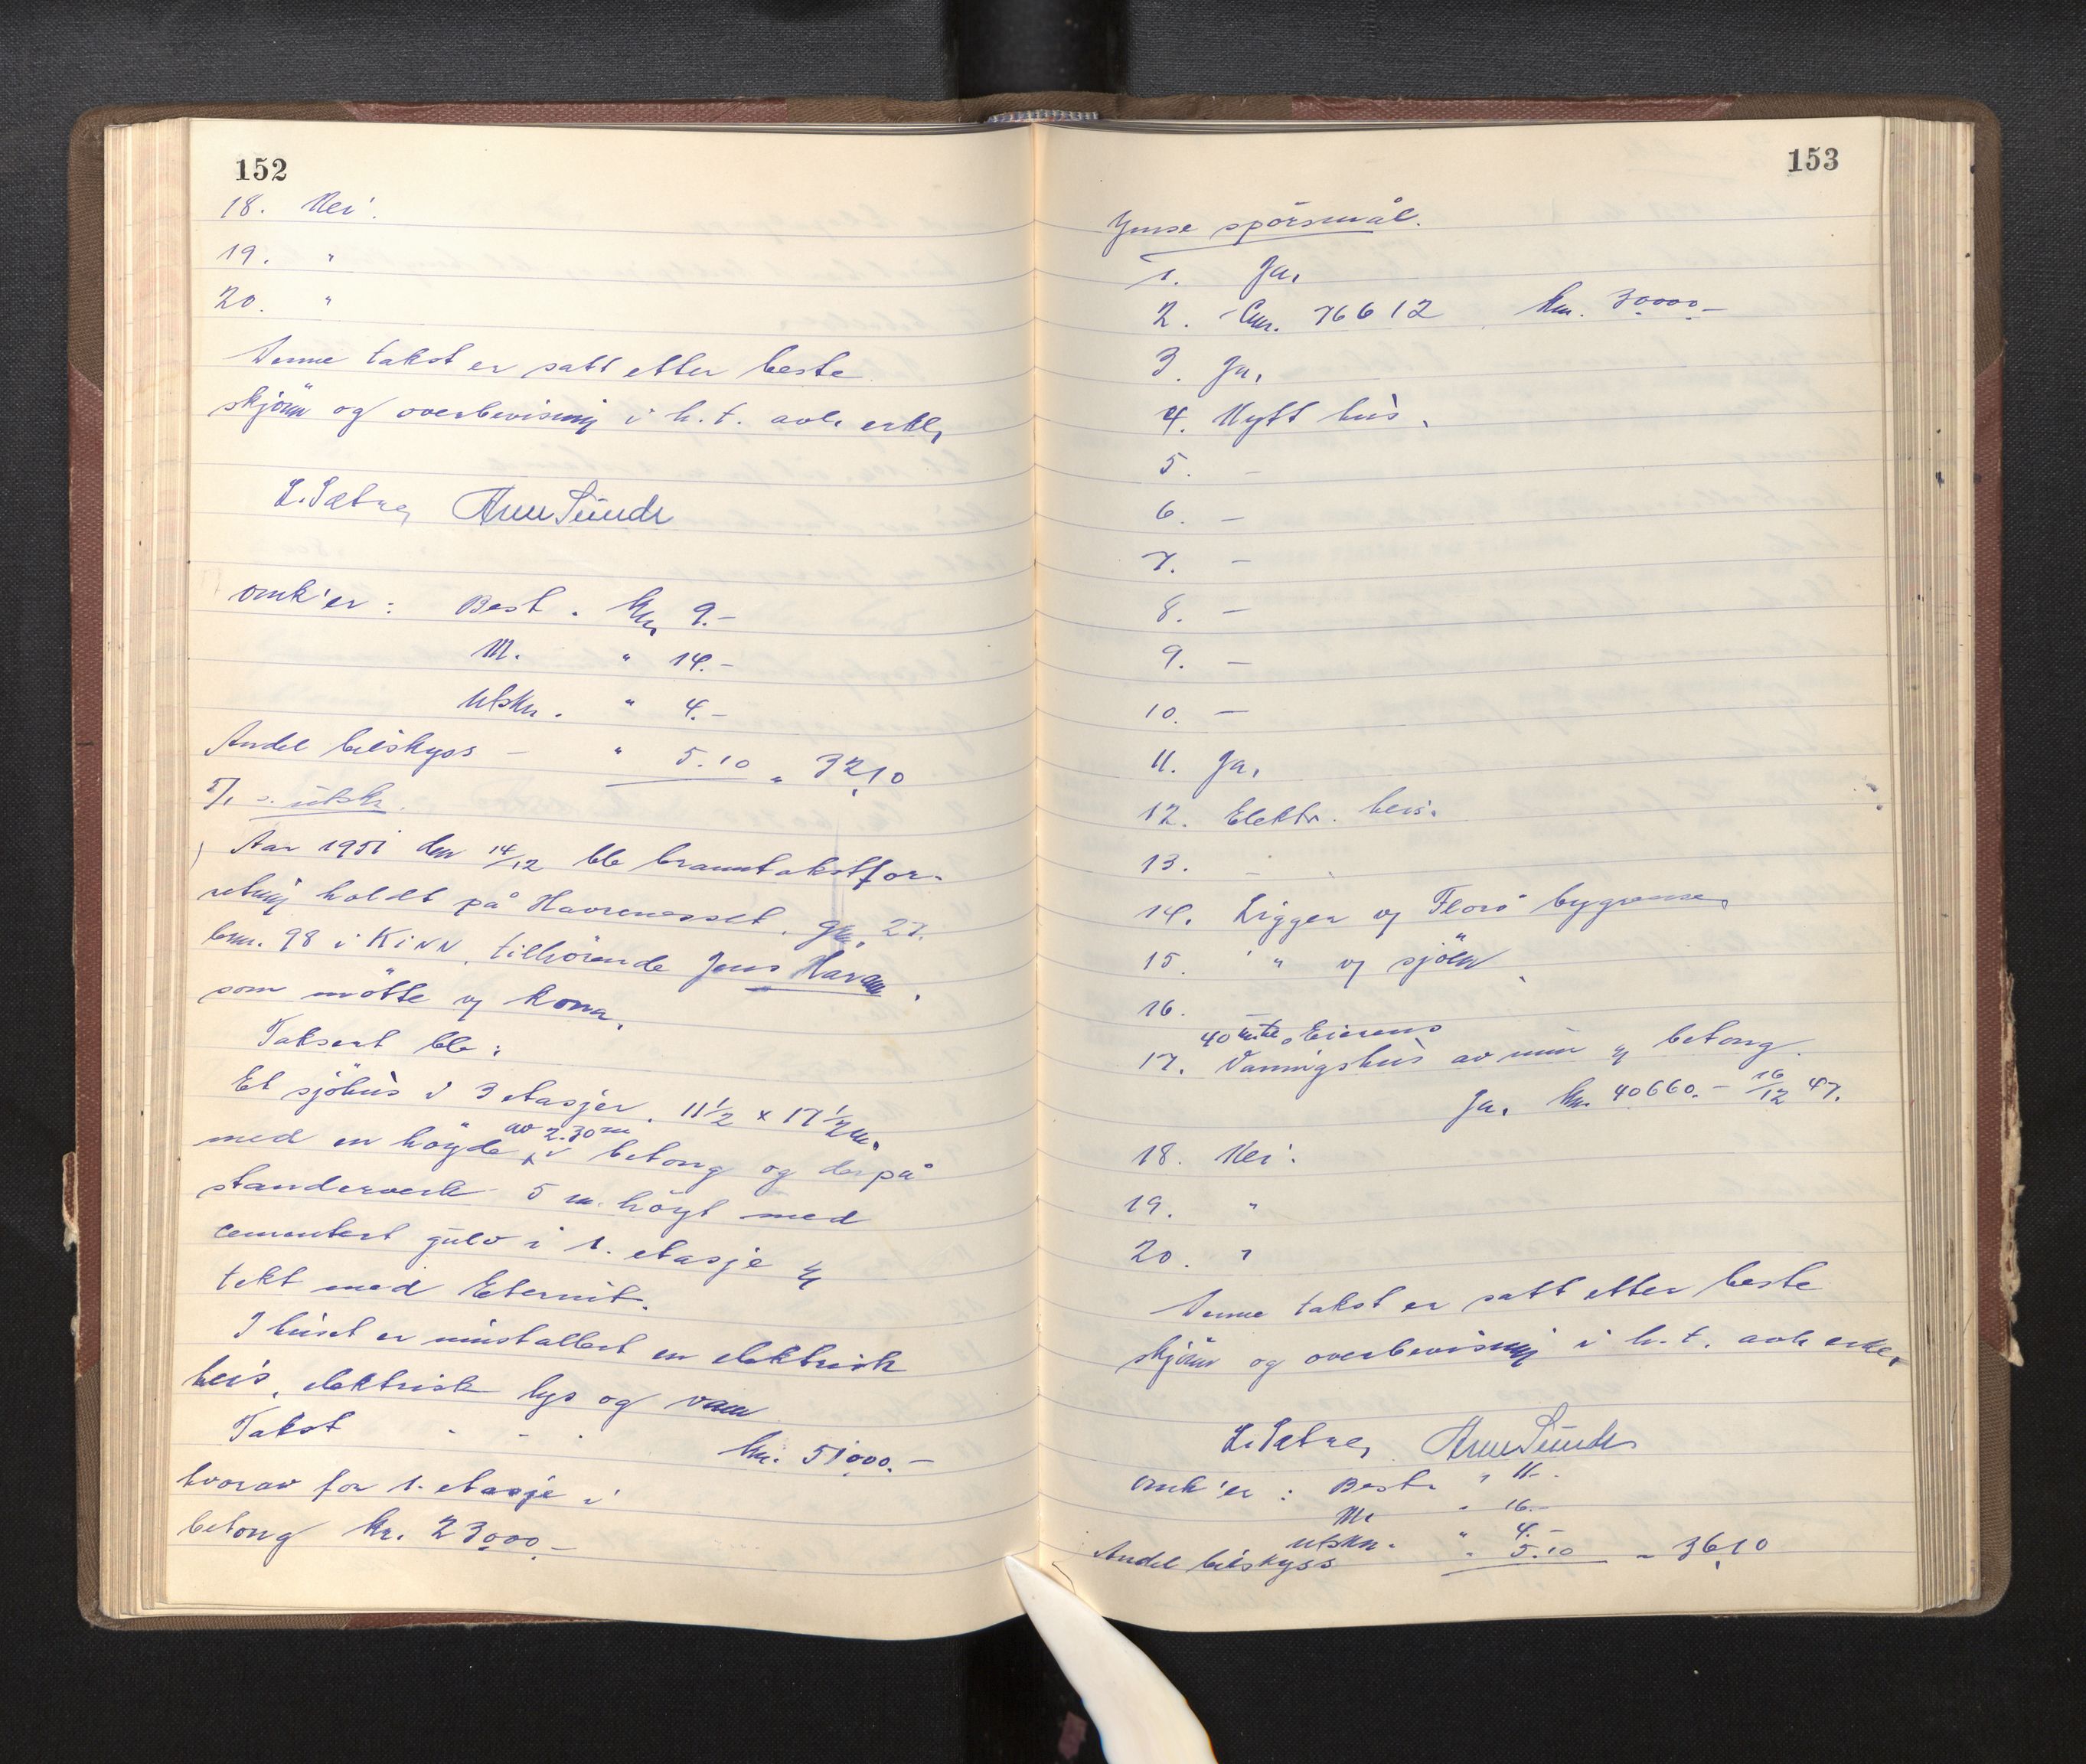 152
18. Nei.
19. "
20. "
Denne takst er satt etter beste
skjönn og overbevisning i h.t. avl. erkl.
L. Sætre, Arne Sunde
omk'er: Best. kr. 9.-
M. " 14.-
Utskr. " 4.-
Andel bilskyss - " 5.10 " 32,10
5/1 s. utskr.
Aar 1951 den 14/12 ble branntakstfor-
retning holdt på Havrenesset, gnr. 27.
bnr. 98 i Kinn, tilhörende Jens Havan,
som mötte og kona.
Taksert ble:
Et sjöhus i 3 etasjer. 11 1/2 x 17 1/2 m.
med en höyde av 2.30 m i betong og derpå
standerverk 5 m. höyt med
cementert gulv i 1. etasje og
tekt med Eternit.
I huset er innstallert en elektrisk
heis, elektrisk lys og vann
Takst - - - kr. 51000.-
hvorav for 1. etasje i
betong kr. 23000.-
153
Ymse spörsmål.
1. Ja.
2. Cnr. 76612 kr. 30000.-
3. Ja.
4. Nytt hus.
5. -
6. -
7. -
8. -
9. -
10. -
11. Ja.
12. Elektr. heis.
13. -
14. Ligger ved Florö bygrense.
15. " ved sjöen
16. -
40 mtr. Eierens
17. Vaningshus av mur og betong.
Ja. kr. 40660.- 16/12 47.
18. Nei.
19. "
20. "
Denne takst er satt etter beste
skjönn og overbevisning i h.t. avl. erkl.
L. Sætre, Arne Sunde
omk'er: Best. " 11.-
M. " 16.-
utskr. " 4.-
Andel bilskyss " 5.10 " 36,10